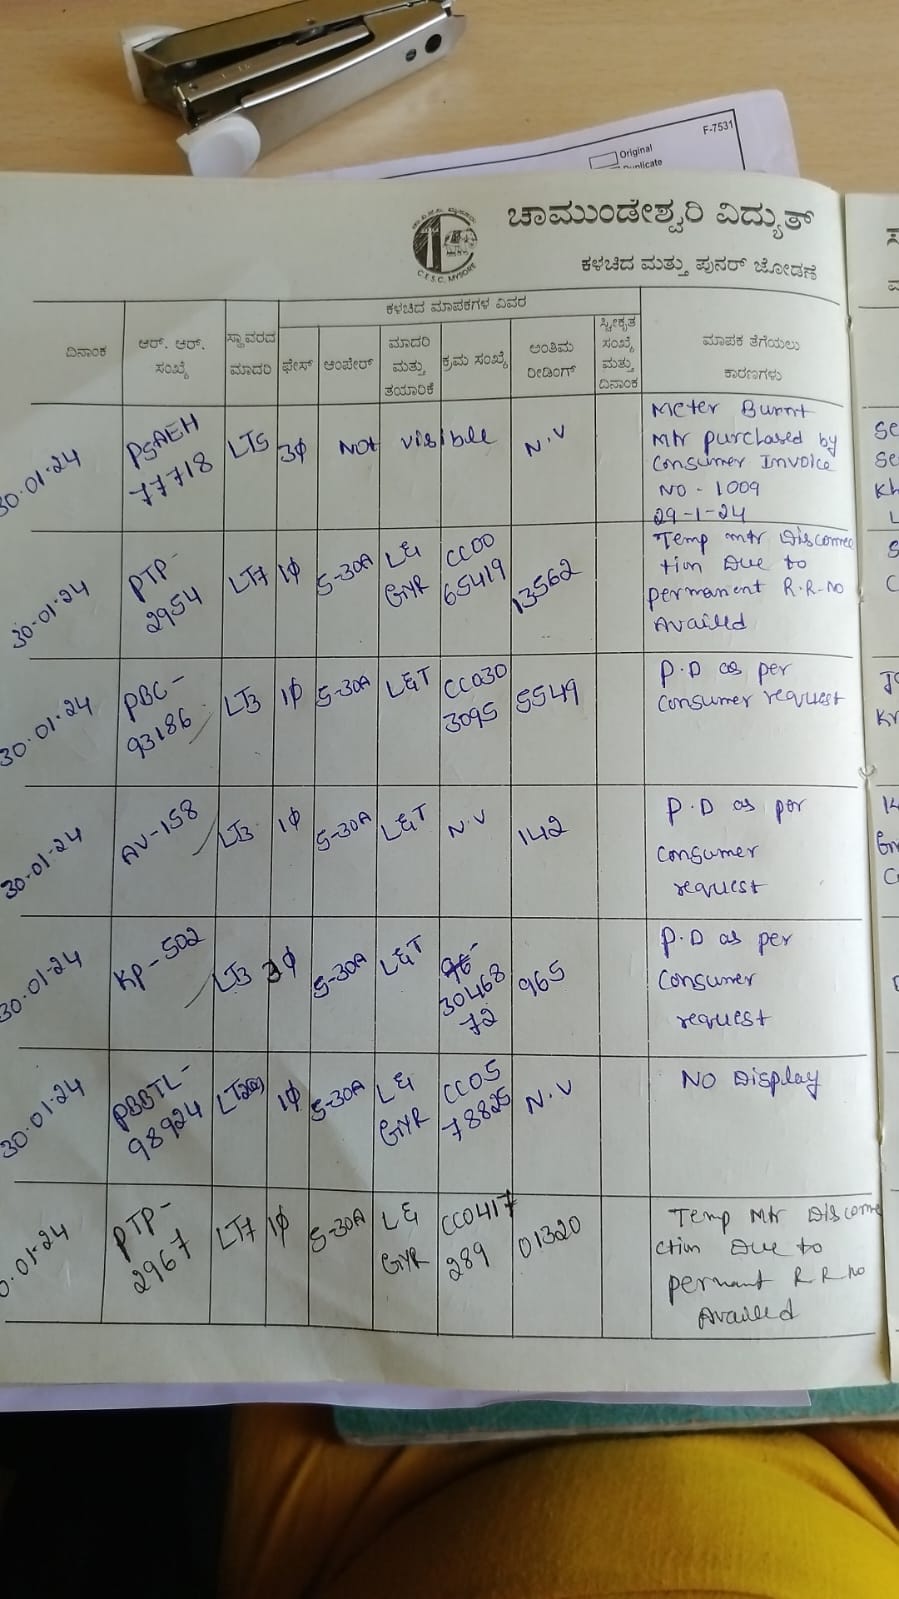 F-7531
Original
ಚಾಮುಂಡೇಶ್ವರಿ ವಿದ್ಯುತ್
C.E.S.C. MYSORE
ಕಳಚಿದ ಮತ್ತು ಪುನರ್ ಜೋಡಣೆ
ಕಳಚಿದ ಮಾಪಕಗಳ ವಿವರ
ದಿನಾಂಕ
ಆರ್. ಆರ್.
ಸಂಖ್ಯೆ
ಸ್ಥಾವರದ
ಮಾದರಿ
ಫೇಸ್
ಆಂಪೇರ್
ಮಾದರಿ
ಮತ್ತು
ತಯಾರಿಕೆ
ಕ್ರಮ ಸಂಖ್ಯೆ
ಅಂತಿಮ
ರೀಡಿಂಗ್
ಸ್ವೀಕೃತ
ಸಂಖ್ಯೆ
ಮತ್ತು
ದಿನಾಂಕ
ಮಾಪಕ ತೆಗೆಯಲು
ಕಾರಣಗಳು
30.01.24
PSAEH
77718
LT5
3ϕ
Not visible
N.V
Meter Burnt
Mtr purchased by
Consumer Invoice
NO - 1009
29-1-24
30.01.24
PTP-
2954
LT7
1ϕ
5-30A
L&
GYR
CC00
65419
13562
Temp mtr Disconnec
tion Due to
permanent R.R.no
Availed
30.01.24
PBC-
93186
LT3
1ϕ
5-30A
L&T
CC030
3095
5549
P.D as per
consumer request
30.01.24
AV-158
LT3
1ϕ
5-30A
L&T
N.V
142
P.D as per
consumer
request
30.01.24
KP-502
LT3
ϕ
5-30A
L&T
30468
72
965
P.D as per
consumer
request
30.01.24
PBBTL-
98924
1ϕ
5-30A
L&
GYR
CC05
78825
N.V
NO Display
0.01.24
PTP-
2967
LT7
1ϕ
5-30A
L&
GYR
CC0417
289
01320
Temp Mtr Disconne
ction Due to
permant R R no
Availed